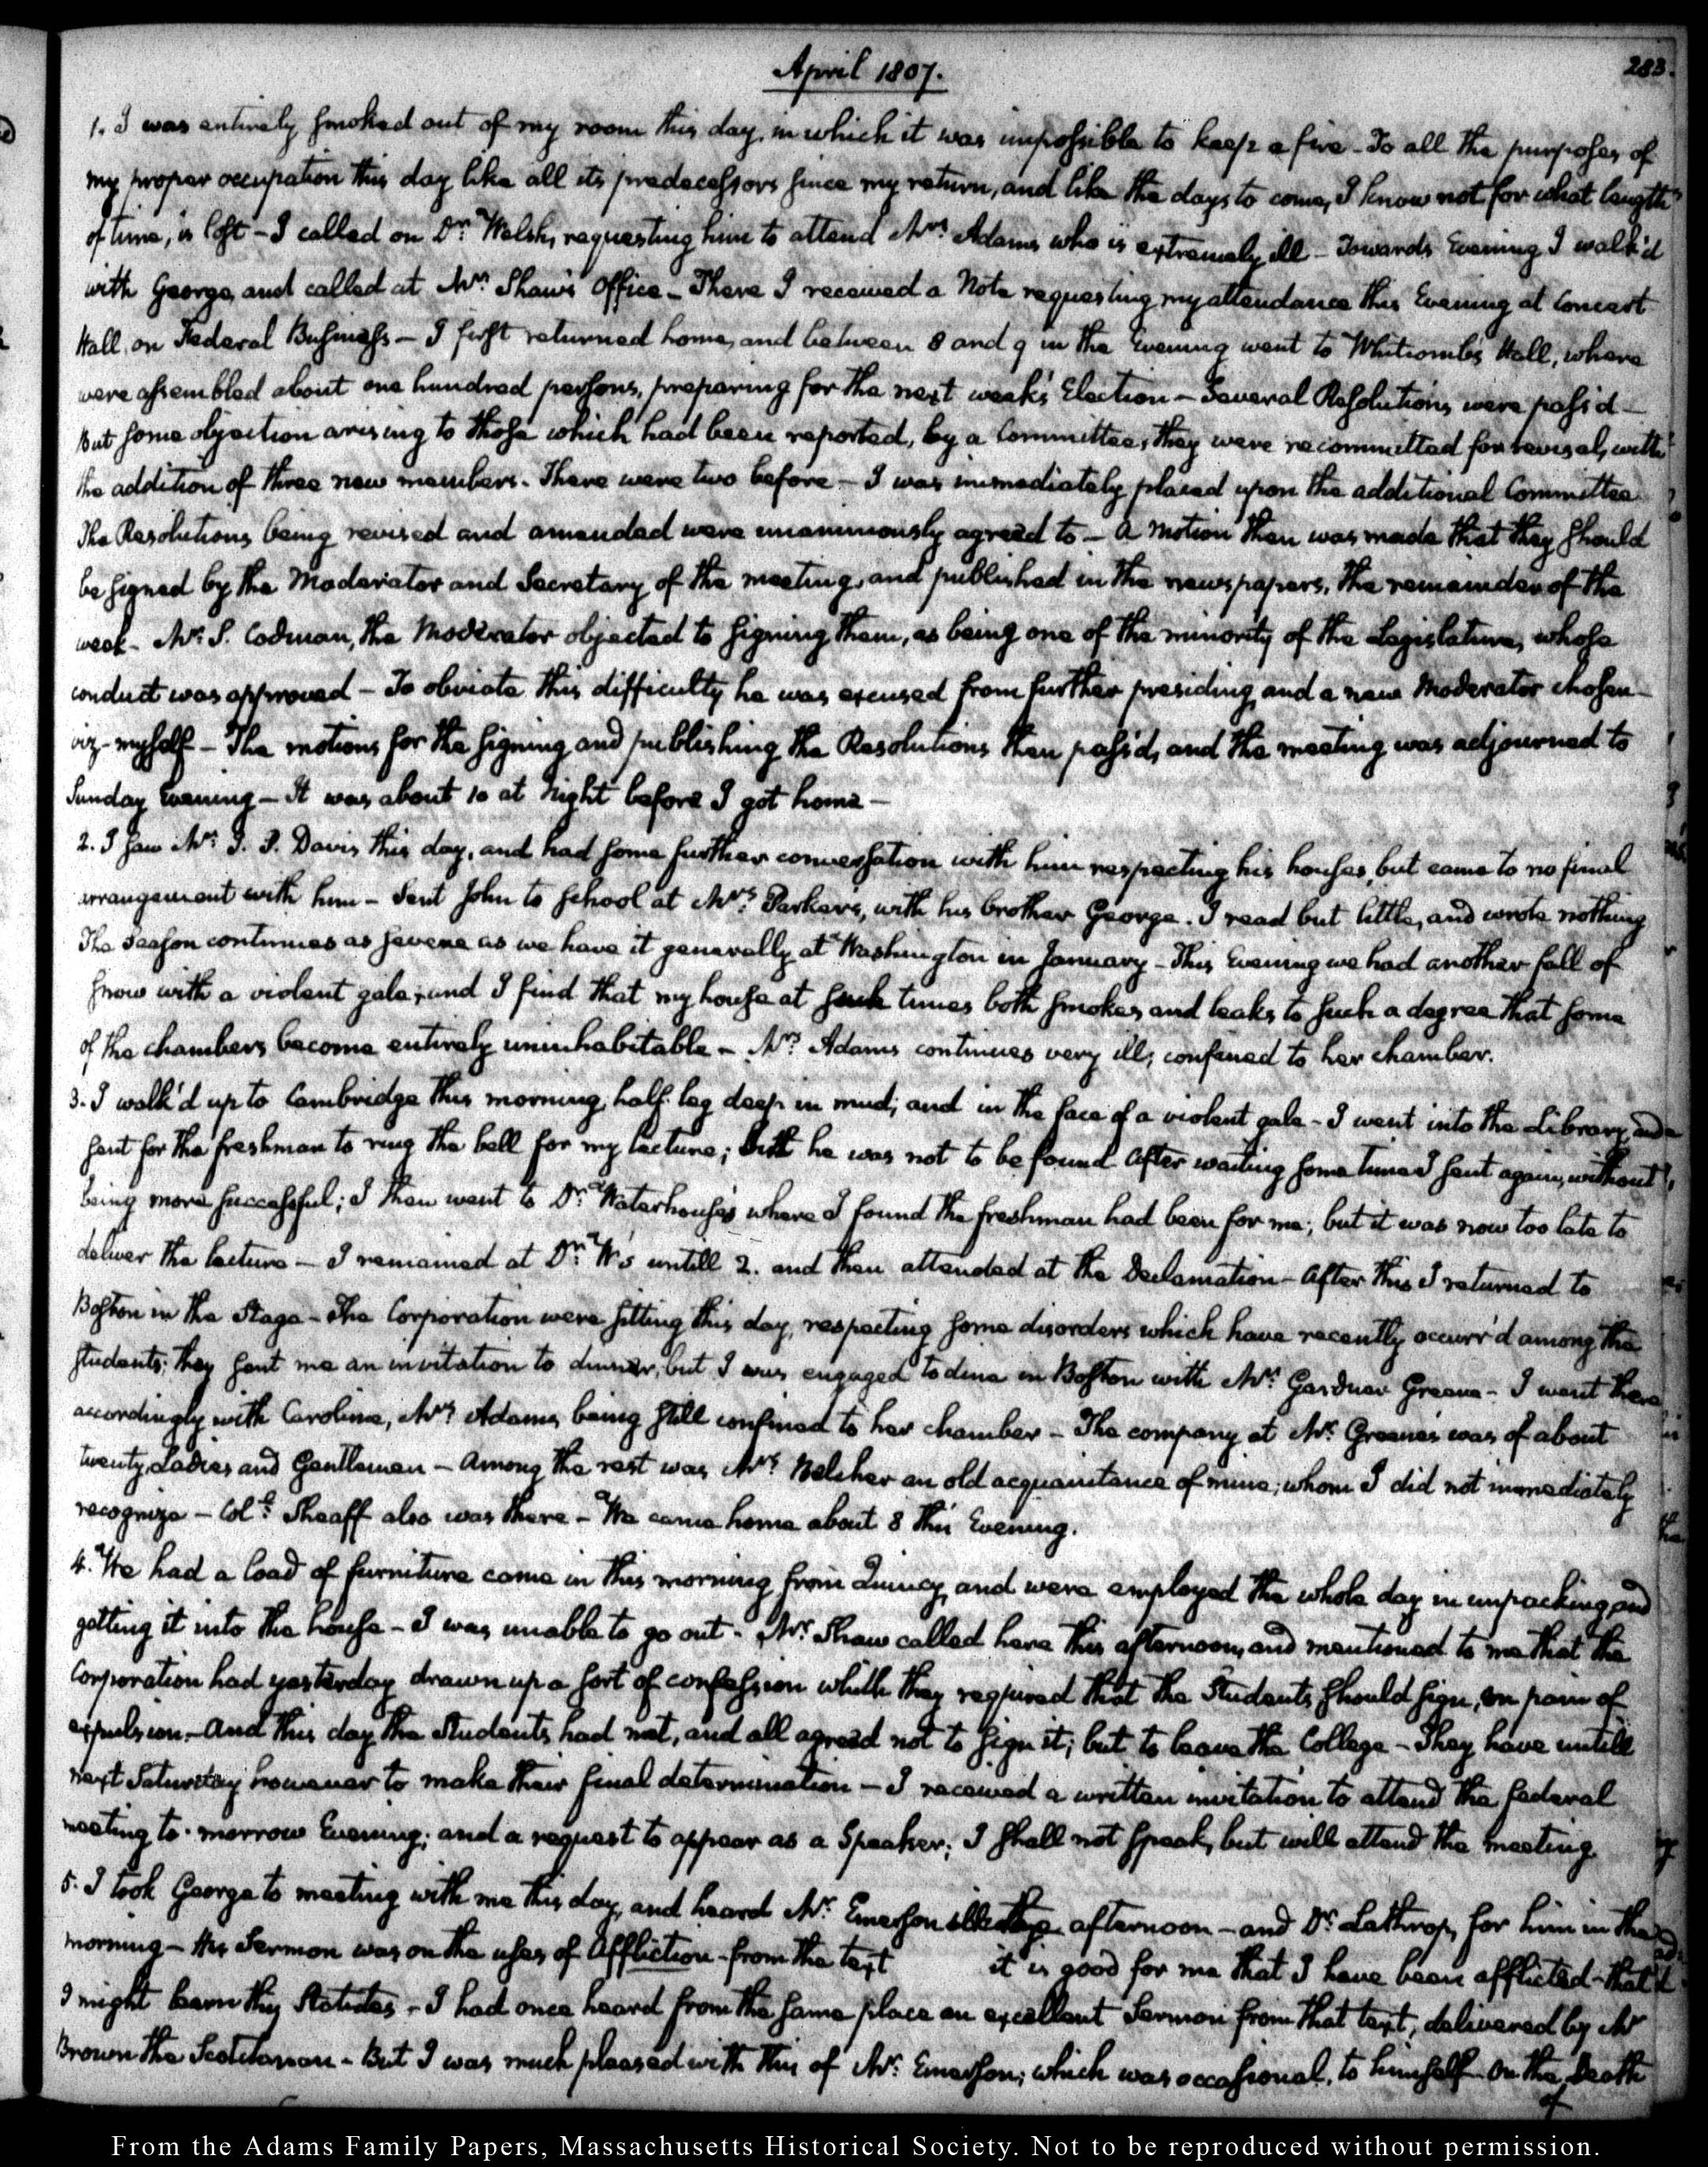 April 1807.
283.
1. I was entirely smoked out of my room this day, in which it was impossible to keep a fire - To all the purposes of
my proper occupation this day like all its predecessors since my return, and like the days to come, I know not for what length
of time, is lost - I called on Dr. Welsh, requesting him to attend Mrs. Adams who is extremely ill - Towards Evening I walk'd
with George, and called at Mr. Shaw's Office - There I received a Note requesting my attendance this Evening at Concert
Hall, on Federal Business - I first returned home, and between 8 and 9 in the Evening went to Whitcomb's Hall, where
were assembled about one hundred persons, preparing for the next week's Election - Several Resolutions were pass'd -
But some objection arising to those which had been reported, by a Committee, they were recommitted for revisal, with
the addition of three new members. There were two before - I was immediately placed upon the additional Committee
The Resolutions being revised and amended were unanimously agreed to - A motion then was made that they should
be signed by the Moderator and Secretary of the meeting, and published in the newspapers, the remainder of the
week - Mr. S. Codman, the Moderator objected to signing them, as being one of the minority of the Legislature, whose
conduct was approved - To obviate this difficulty he was excused from further presiding, and a new Moderator chosen -
viz - myself - The motions for the signing and publishing the Resolutions then pass'd, and the meeting was adjourned to
Sunday Evening - It was about 10 at Night before I got home -
2. I saw Mr. I. P. Davis this day, and had some further conversation with him respecting his houses, but came to no final
arrangement with him - Sent John to school at Mrs. Parker's, with his brother George. I read but little, and wrote nothing
The season continues as severe as we have it generally at Washington in January - This Evening we had another fall of
snow with a violent gale; and I find that my house at such times both smokes and leaks to such a degree that some
of the chambers become entirely uninhabitable - Mrs. Adams continues very ill; confined to her chamber.
3. I walk'd up to Cambridge this morning, half-leg deep in mud; and in the face of a violent gale - I went into the Library, and
sent for the freshman to ring the bell for my lecture; but he was not to be found After waiting some time I sent again, without
being more successful; I then went to Dr. Waterhouse's where I found the freshman had been for me; but it was now too late to
deliver the lecture - I remained at Dr. W's untill 2. and then attended at the Declamation - After this I returned to
Boston in the Stage - The Corporation were sitting this day, respecting some disorders which have recently occurr'd among the
students; they sent me an invitation to dinner, but I was engaged to dine in Boston with Mr. Gardner Greene - I went there
accordingly with Caroline, Mrs. Adams, being still confined to her chamber - The company at Mr. Greene's was of about
twenty Ladies and Gentlemen - Among the rest was Mrs. Belcher an old acquaintance of mine; whom I did not immediately
recognize - Coll. Sheaff also was there - We came home about 8 this Evening.
4. We had a load of furniture come in this morning from Quincy, and were employed the whole day in unpacking, and
getting it into the house - I was unable to go out - Mr. Shaw called here this afternoon, and mentioned to me that the
Corporation had yesterday drawn up a sort of confession which they required that the Students should sign, on pain of
expulsion - And this day the Students had met, and all agreed not to sign it; but to leave the College - They have untill
next Saturday however to make their final determination - I received a written invitation to attend the federal
meeting to-morrow Evening; and a request to appear as a Speaker; I shall not speak, but will attend the meeting.
5. I took George to meeting with me this day, and heard Mr. Emerson afternoon - and Dr. Lathrop, for him in the
morning - His Sermon was on the uses of Affliction - from the text it is good for me that I have been afflicted - that
I might learn thy Statutes - I had once heard from the same place an excellent Sermon from that text, delivered by Mr
Brown the Scotchman - But I was much pleased with this of Mr. Emerson; which was occasional, to himself on the Death
of
From the Adams Family Papers, Massachusetts Historical Society. Not to be reproduced without permission.